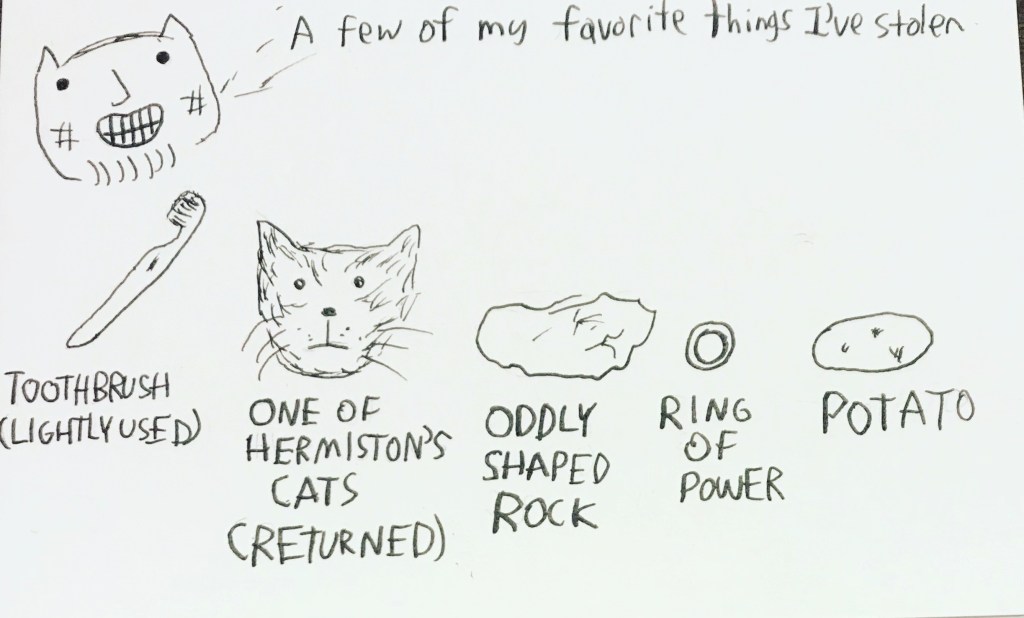 A few of my favorite things I've stolen
TOOTHBRUSH
(LIGHTLY USED)
ONE OF
HERMISTON'S
CATS
(RETURNED)
ODDLY
SHAPED
ROCK
RING
OF
POWER
POTATO